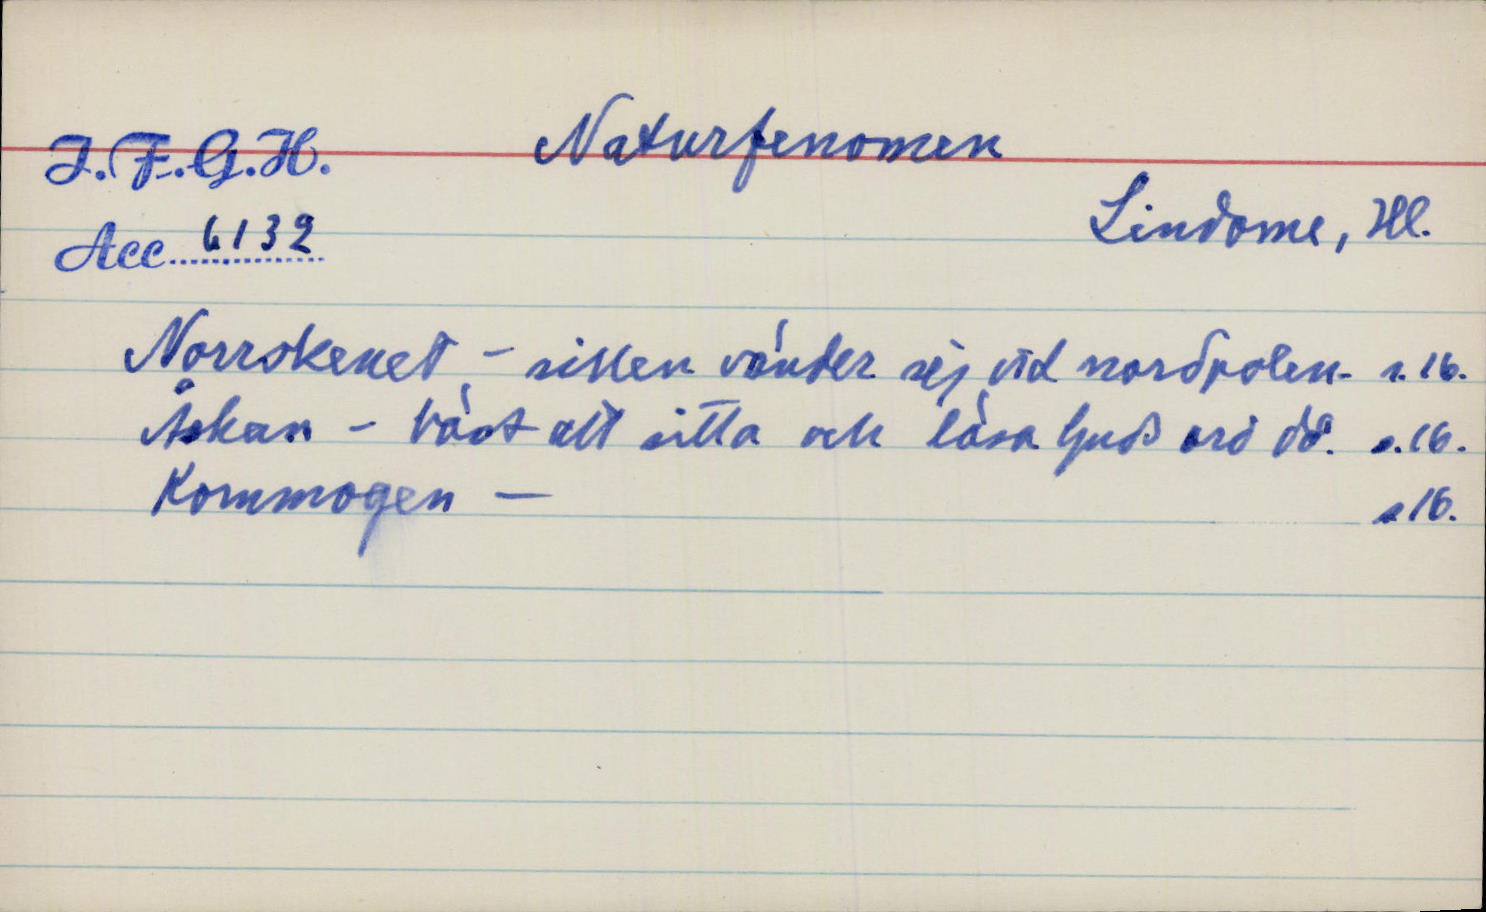 Naturfenomen
I.F.G.H.
Lindome, Hl.
Acc 6132
Norrskenet - sillen vänder sej vid nordpolen. s. 16.
Åskan - bäst att sitta och läsa Guds ord då. s. 16.
Kornmogen - s 16.